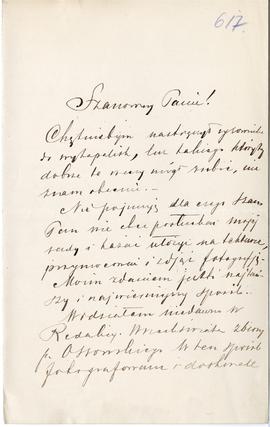 617.
Szanowny Panie!
Chętniebym nastręczył rysownika
do wykopalisk, lecz takiego któryby
dobrze te rzeczy mógł zrobić, nie
znam obecnie. —
Nie pojmuję dla czego Szan.
Pan nie chce posłuchać mojej
rady i kazać ułożyć na tekturze,
przymocować i zdjąć fotografję.
Moim zdaniem jest to najtań-
szy i najwierniejszy sposób.
Widziałem niedawno w
Redakcyi Wszechświata zbiory
p. Ossowskiego w ten sposób
fotografowane i doskonale